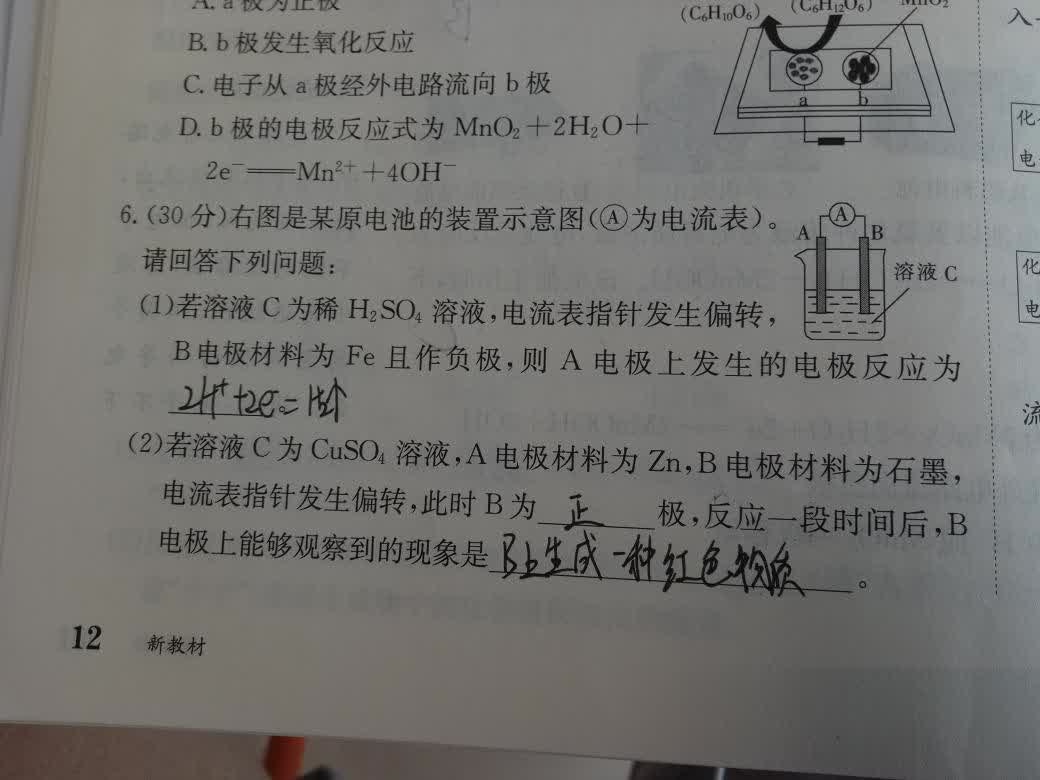 A. a 极为正极
B. b 极发生氧化反应
C. 电子从 a 极经外电路流向 b 极
D. b 极的电极反应式为 MnO₂+2H₂O+
2e⁻══Mn²⁺+4OH⁻
(C₆H₁₀O₆) (C₆H₁₂O₆) MnO₂
a b
6. (30 分)右图是某原电池的装置示意图(Ⓐ为电流表)。
请回答下列问题:
A Ⓐ B
溶液 C
(1)若溶液 C 为稀 H₂SO₄ 溶液,电流表指针发生偏转,
B 电极材料为 Fe 且作负极,则 A 电极上发生的电极反应为
2H⁺+2e⁻=H₂↑
(2)若溶液 C 为 CuSO₄ 溶液,A 电极材料为 Zn,B 电极材料为石墨,
电流表指针发生偏转,此时 B 为 正 极,反应一段时间后,B
电极上能够观察到的现象是 B上生成一种红色物质 。
12 新教材
入
化
电
化
电
流